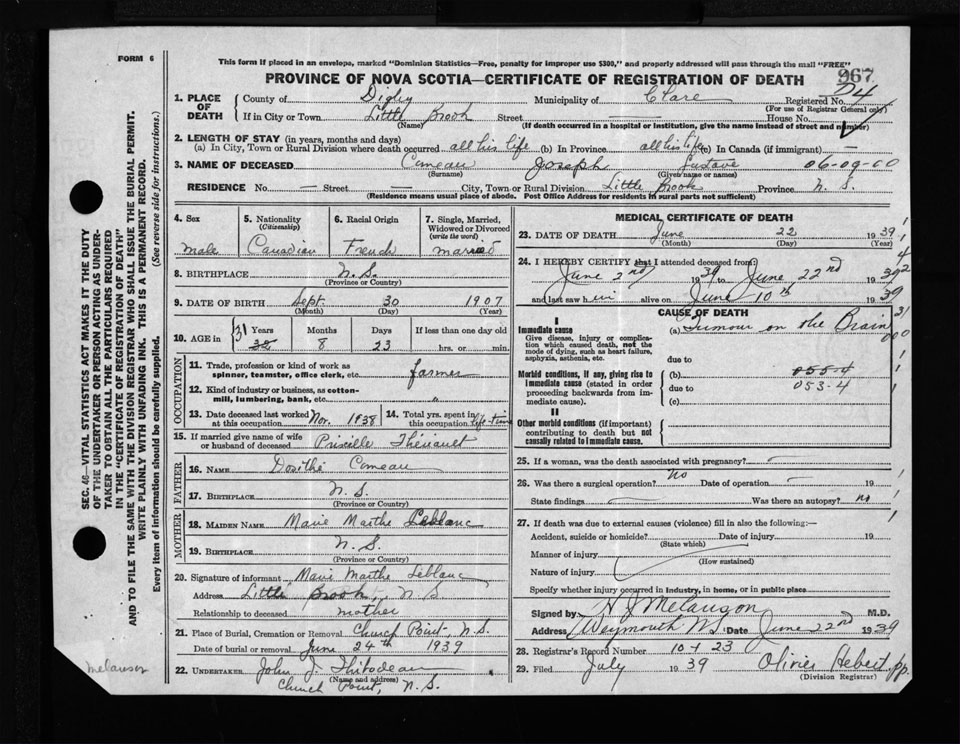 FORM 6
This form if placed in an envelope, marked "Dominion Statistics—Free, penalty for improper use $300," and properly addressed will pass through the mail "FREE"
PROVINCE OF NOVA SCOTIA—CERTIFICATE OF REGISTRATION OF DEATH
967
1. PLACE OF DEATH
County of Digby Municipality of Clare Registered No. 74
(For use of Registrar General only)
If in City or Town Little Brook Street — House No. —
(Name) (If death occurred in a hospital or institution, give the name instead of street and number)
2. LENGTH OF STAY (in years, months and days)
(a) In City, Town or Rural Division where death occurred all his life (b) In Province all his life (c) In Canada (if immigrant) —
3. NAME OF DECEASED Comeau Joseph Gustave 06-09-60
(Surname) (Given name or names)
RESIDENCE No. — Street — City, Town or Rural Division Little Brook Province N. S.
(Residence means usual place of abode. Post Office Address for residents in rural parts not sufficient)
4. Sex male
5. Nationality (Citizenship) Canadian
6. Racial Origin French
7. Single, Married, Widowed or Divorced (write the word) married
8. BIRTHPLACE N. S.
(Province or Country)
9. DATE OF BIRTH Sept 30 1907
(Month) (Day) (Year)
10. AGE in 31 Years 8 Months 23 Days If less than one day old
hrs. or min.
OCCUPATION
11. Trade, profession or kind of work as spinner, teamster, office clerk, etc. farmer
12. Kind of industry or business, as cotton-mill, lumbering, bank, etc. "
13. Date deceased last worked at this occupation Nov. 1938
14. Total yrs. spent in this occupation Life time
15. If married give name of wife or husband of deceased Priscille Thériault
FATHER
16. NAME Dosithé Comeau
17. BIRTHPLACE N. S.
(Province or Country)
MOTHER
18. MAIDEN NAME Marie Marthe Leblanc
19. BIRTHPLACE N. S.
(Province or Country)
20. Signature of informant Marie Marthe Leblanc
Address Little Brook, N S
Relationship to deceased mother
21. Place of Burial, Cremation or Removal Church Point N. S.
Date of burial or removal June 24th 1939
22. UNDERTAKER John J. Thibodeau
(Name and address)
Church Point, N. S.
MEDICAL CERTIFICATE OF DEATH
23. DATE OF DEATH June 22 1939
(Month) (Day) (Year)
24. I HEREBY CERTIFY that I attended deceased from:
June 2nd 1939 to June 22nd 1939
and last saw him alive on June 10th 1939
CAUSE OF DEATH
I
Immediate cause (a) Tumour on the Brain
Give disease, injury or complication which caused death, not the mode of dying, such as heart failure, asphyxia, asthenia, etc.
due to
Morbid conditions, if any, giving rise to immediate cause (stated in order proceeding backwards from immediate cause). (b) 055-4
due to 053-4
(c)
II
Other morbid conditions (if important) contributing to death but not causally related to immediate cause.
25. If a woman, was the death associated with pregnancy? —
26. Was there a surgical operation? No Date of operation — 19
State findings — Was there an autopsy? no
27. If death was due to external causes (violence) fill in also the following:—
Accident, suicide or homicide? Date of injury 19
(State which)
Manner of injury
(How sustained)
Nature of injury
Specify whether injury occurred in industry, in home, or in public place
Signed by H J Melanson M.D.
Address Weymouth NS Date June 22nd 1939
28. Registrar's Record Number 10-1 23
29. Filed July 1939 Olivier Hebert pp.
(Division Registrar)
SEC. 46—VITAL STATISTICS ACT MAKES IT THE DUTY
OF THE UNDERTAKER OR PERSON ACTING AS UNDER-
TAKER TO OBTAIN ALL THE PARTICULARS REQUIRED
IN THE "CERTIFICATE OF REGISTRATION OF DEATH"
AND TO FILE THE SAME WITH THE DIVISION REGISTRAR WHO SHALL ISSUE THE BURIAL PERMIT.
WRITE PLAINLY WITH UNFADING INK. THIS IS A PERMANENT RECORD.
Every item of information should be carefully supplied. (See reverse side for instructions.)
Melanson